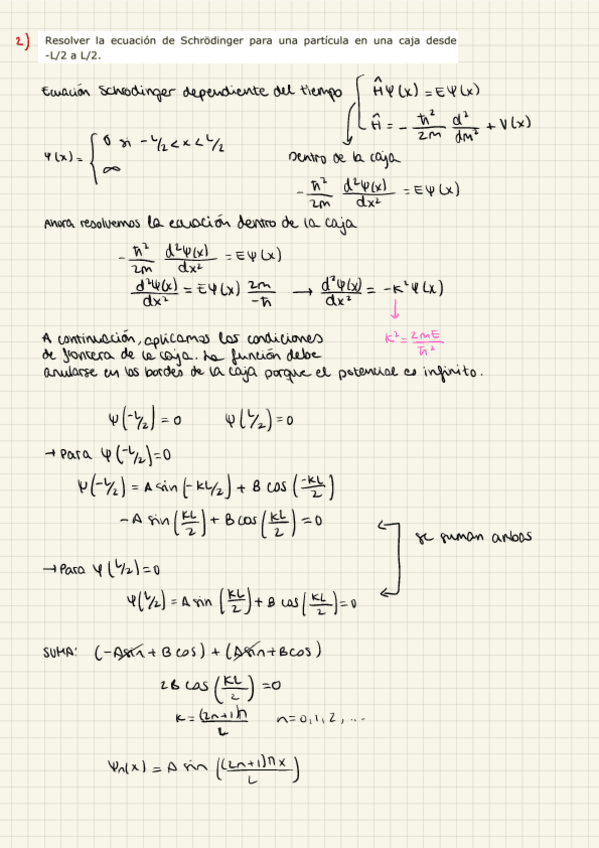 2) Resolver la ecuación de Schrödinger para una partícula en una caja desde
-L/2 a L/2.
Ecuación Schrodinger dependiente del tiempo { Ĥψ(x) = Eψ(x)
Ĥ = - ħ²/2m d²/dm² + V(x)
ψ(x) = { 0 si -L/2 < x < L/2
∞
Dentro de la caja
- ħ²/2m d²ψ(x)/dx² = Eψ(x)
Ahora resolvemos la ecuación dentro de la caja
- ħ²/2m d²ψ(x)/dx² = Eψ(x)
d²ψ(x)/dx² = Eψ(x) 2m/-ħ → d²ψ(x)/dx² = -K²ψ(x)
K² = 2mE/ħ²
A continuación, aplicamos las condiciones
de frontera de la caja. La función debe
anularse en los bordes de la caja porque el potencial es infinito.
ψ(-L/2) = 0 ψ(L/2) = 0
→ Para ψ(-L/2) = 0
ψ(-L/2) = A sin(-KL/2) + B cos(-KL/2)
-A sin(KL/2) + B cos(KL/2) = 0
se suman ambas
→ Para ψ(L/2) = 0
ψ(L/2) = A sin(KL/2) + B cos(KL/2) = 0
SUMA: (-Asin + B cos) + (Asin + Bcos)
2B cos(KL/2) = 0
K = (2n+1)π/L n = 0, 1, 2, ...
ψn(x) = A sin((2n+1)πx/L)